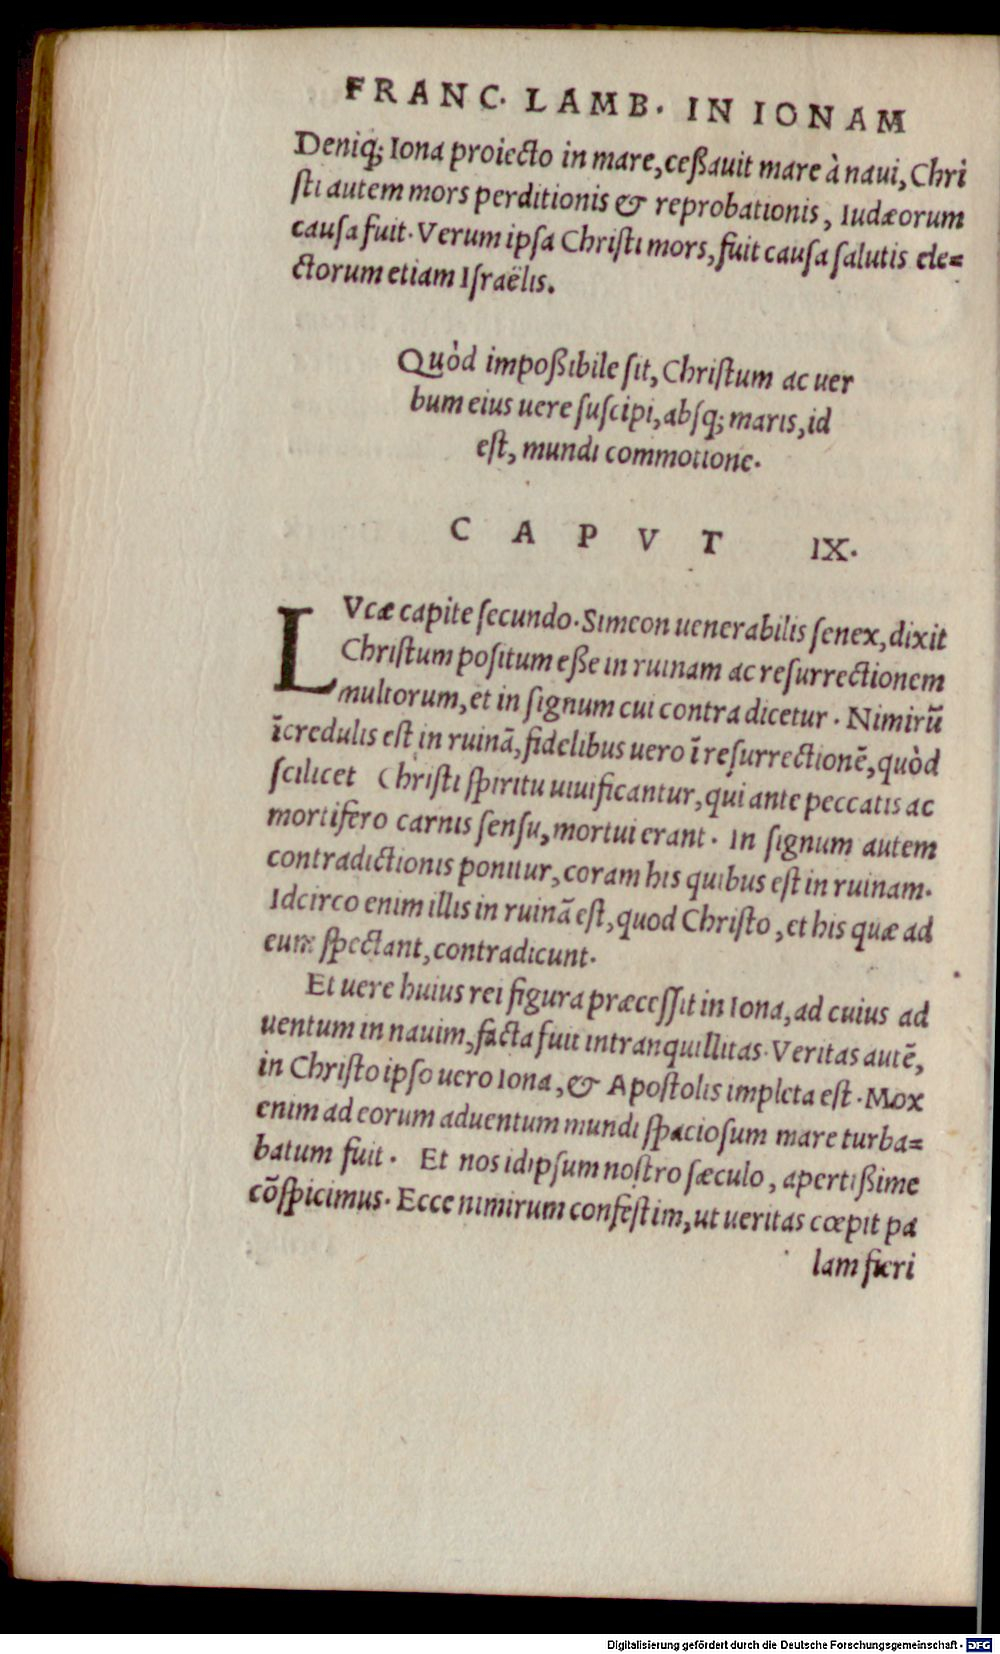 FRANC. LAMB. IN IONAM
Deniq; Iona proiecto in mare, ceßauit mare à naui, Chri
ſti autem mors perditionis & reprobationis, Iudæorum
cauſa fuit. Verum ipſa Chriſti mors, fuit cauſa ſalutis ele=
ctorum etiam Iſraëlis.
Quòd impoßibile ſit, Chriſtum ac uer
bum eius uere ſuſcipi, abſq; maris, id
eſt, mundi commotione.
CAPVT IX.
LVcæ capite ſecundo. Simeon uenerabilis ſenex, dixit
Chriſtum poſitum eße in ruinam ac reſurrectionem
multorum, et in ſignum cui contradicetur. Nimirū
īcredulis eſt in ruinā, fidelibus uero ī reſurrectionē, quòd
ſcilicet Chriſti ſpiritu uiuificantur, qui ante peccatis ac
mortifero carnis ſenſu, mortui erant. In ſignum autem
contradictionis ponitur, coram his quibus eſt in ruinam.
Idcirco enim illis in ruinā eſt, quod Chriſto, et his quæ ad
eum ſpectant, contradicunt.
Et uere huius rei figura præceſſit in Iona, ad cuius ad
uentum in nauim, facta fuit intranquillitas. Veritas autē,
in Chriſto ipſo uero Iona, & Apoſtolis impleta eſt. Mox
enim ad eorum aduentum mundi ſpacioſum mare turba=
batum fuit. Et nos idipſum noſtro ſæculo, apertißime
cōſpicimus. Ecce nimirum confeſtim, ut ueritas cœpit pa
lam fieri
Digitalisierung gefördert durch die Deutsche Forschungsgemeinschaft - DFG